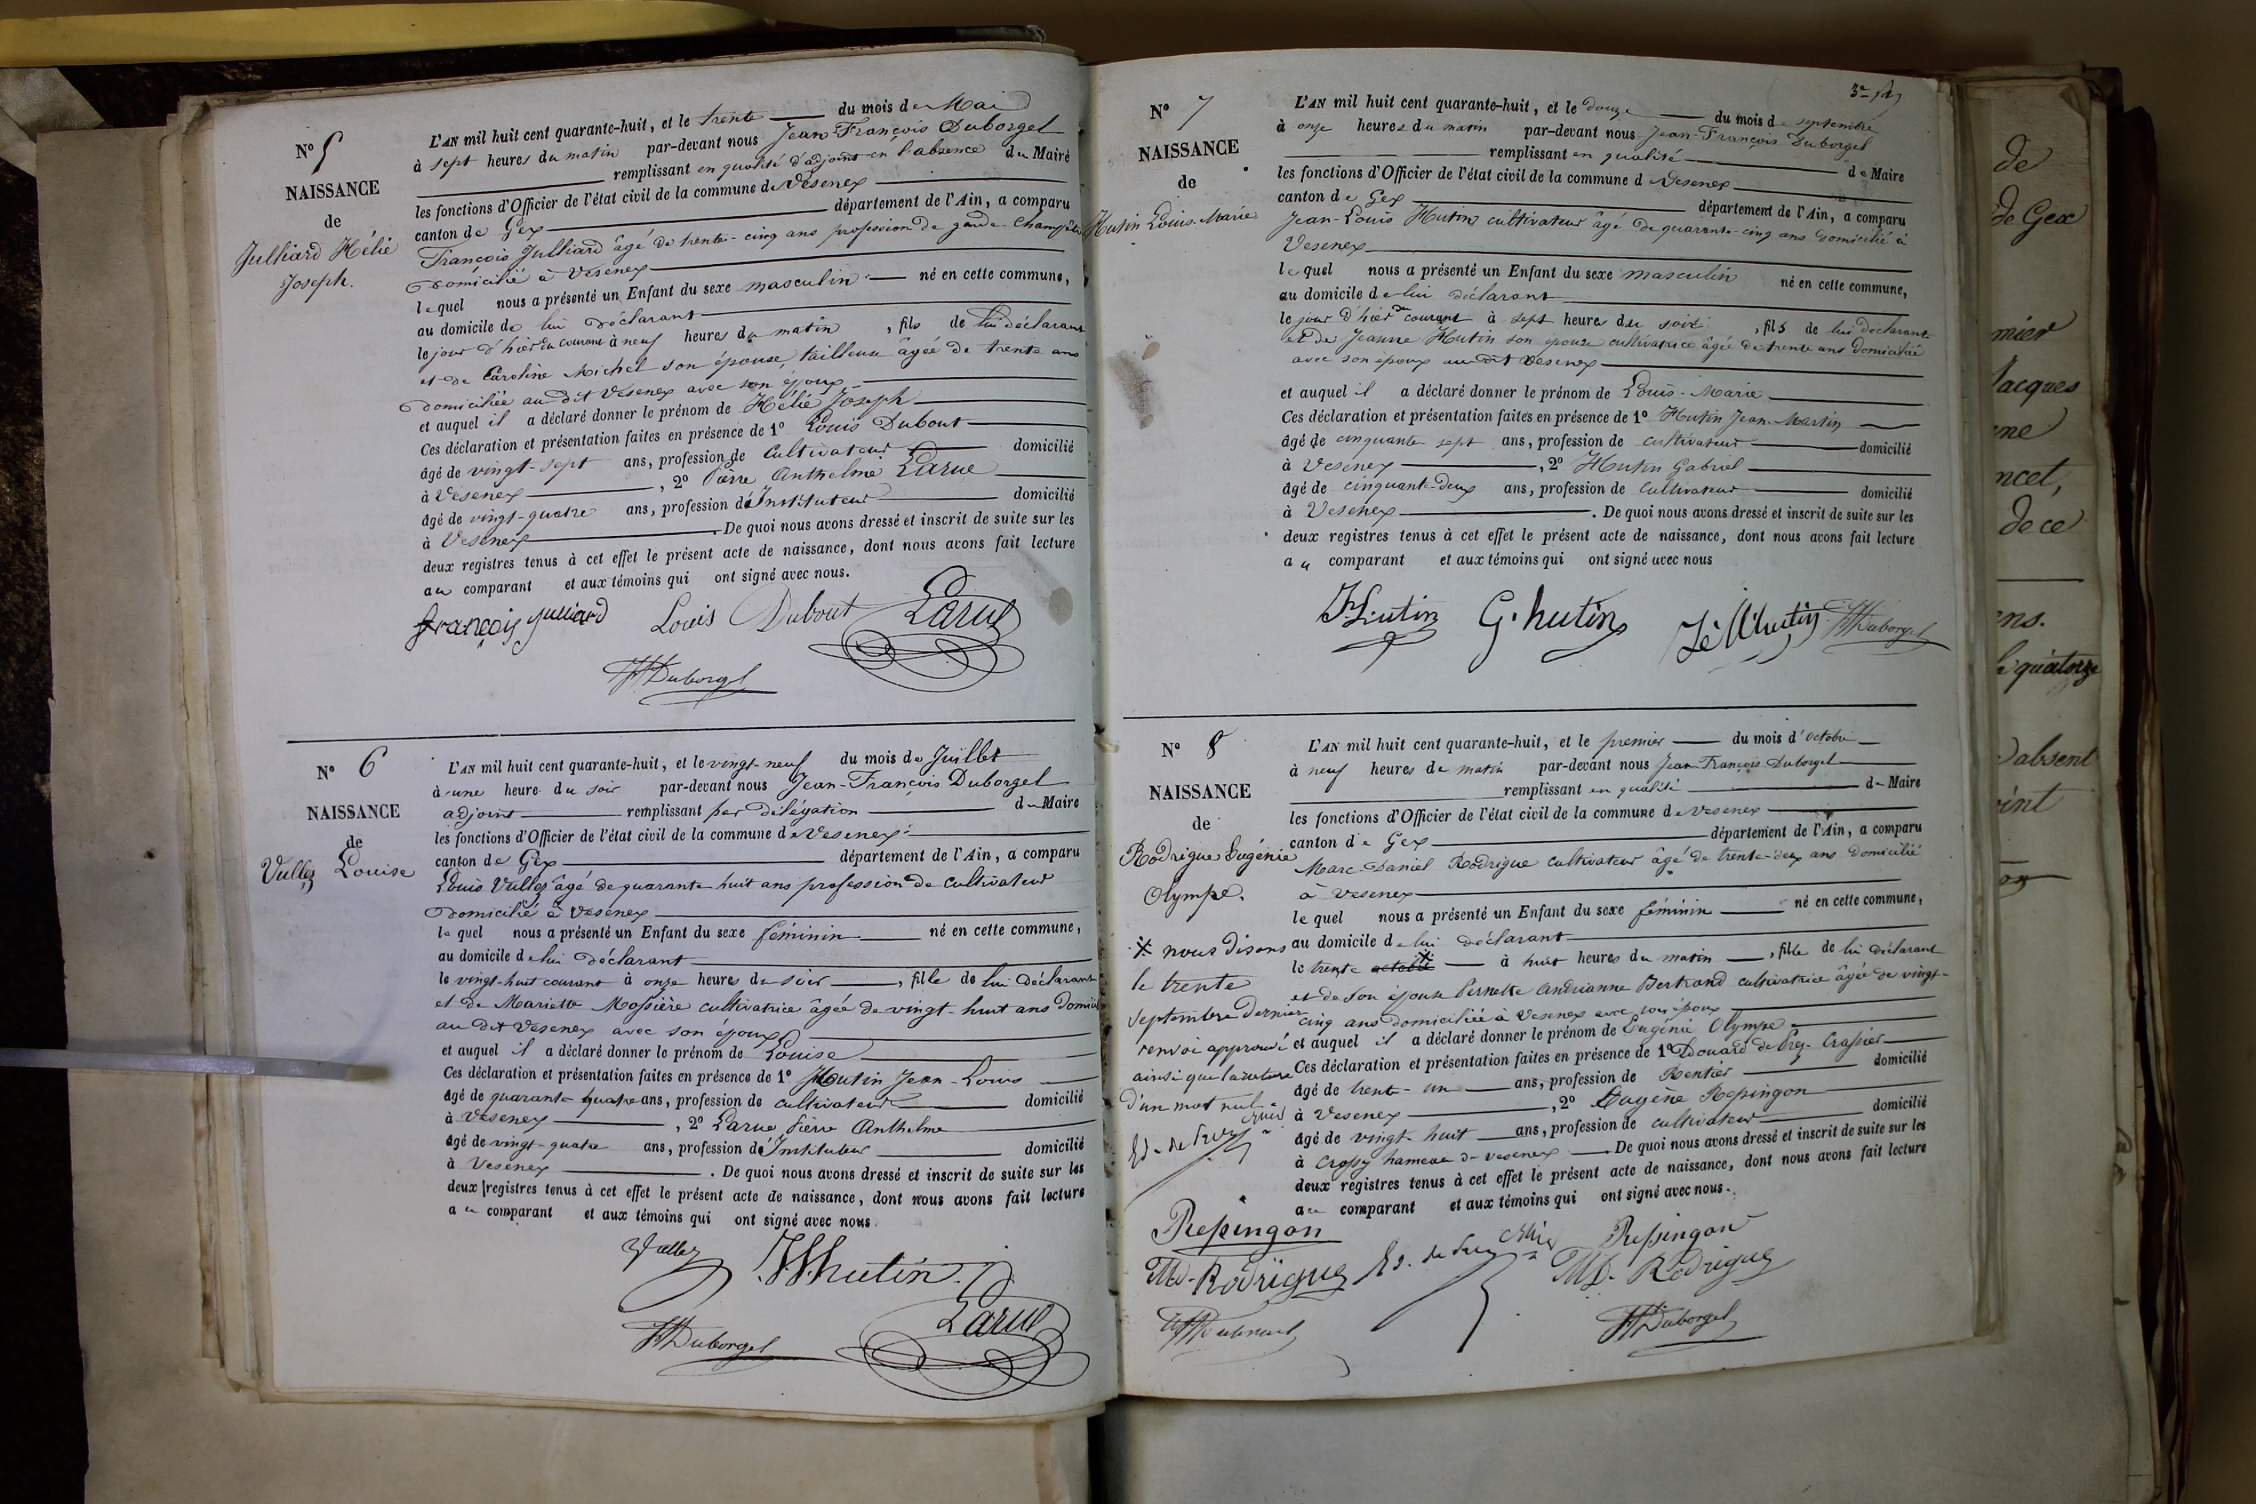 N° 5
NAISSANCE
de
Julliard Hélie
Joseph.
L'AN mil huit cent quarante-huit, et le trente du mois de Mai
à sept heures du matin par-devant nous Jean-François Duborgel
remplissant en qualité d'adjoint en l'absence du Maire
les fonctions d'Officier de l'état civil de la commune de Vesenex
canton de Gex département de l'Ain, a comparu
François Julliard âgé de trente-cinq ans profession de garde-champêtre
domicilié à Vesenex
lequel nous a présenté un Enfant du sexe masculin né en cette commune,
au domicile de lui déclarant
le jour d'hier du courant à neuf heures du matin, fils de lui déclarant
et de Caroline Michel son épouse, tailleuse âgée de trente ans
domiciliée au dit Vesenex avec son époux
et auquel il a déclaré donner le prénom de Hélie Joseph
Ces déclaration et présentation faites en présence de 1° Louis Dubout
âgé de vingt-sept ans, profession de Cultivateur domicilié
à Vesenex, 2° Pierre Anthelme Larue
âgé de vingt-quatre ans, profession d'Instituteur domicilié
à Vesenex. De quoi nous avons dressé et inscrit de suite sur les
deux registres tenus à cet effet le présent acte de naissance, dont nous avons fait lecture
au comparant et aux témoins qui ont signé avec nous.
françois julliard Louis Dubout Larue
Duborgel
N° 6
NAISSANCE
de
Vullez Louise
L'AN mil huit cent quarante-huit, et le vingt-neuf du mois de Juillet
à une heure du soir par-devant nous Jean-François Duborgel
adjoint remplissant par délégation du Maire
les fonctions d'Officier de l'état civil de la commune de Vesenex
canton de Gex département de l'Ain, a comparu
Louis Vullez âgé de quarante huit ans profession de cultivateur
domicilié à Vesenex
lequel nous a présenté un Enfant du sexe féminin né en cette commune,
au domicile de lui déclarant
le vingt-huit courant à onze heures du soir, fille de lui déclarant
et de Mariette Mossière cultivatrice âgée de vingt-huit ans domiciliée
au dit Vesenex avec son époux
et auquel il a déclaré donner le prénom de Louise
Ces déclaration et présentation faites en présence de 1° Hutin Jean-Louis
âgé de quarante quatre ans, profession de cultivateur domicilié
à Vesenex, 2° Larue Pierre Anthelme
âgé de vingt-quatre ans, profession d'Instituteur domicilié
à Vesenex. De quoi nous avons dressé et inscrit de suite sur les
deux registres tenus à cet effet le présent acte de naissance, dont nous avons fait lecture
au comparant et aux témoins qui ont signé avec nous.
Vullez hutin
Duborgel Larue
N° 7
NAISSANCE
de
Hutin Louis-Marie
L'AN mil huit cent quarante-huit, et le douze du mois de septembre
à onze heures du matin par-devant nous Jean-François Duborgel
remplissant en qualité de Maire
les fonctions d'Officier de l'état civil de la commune de Vesenex
canton de Gex département de l'Ain, a comparu
Jean-Louis Hutin cultivateur âgé de quarante-cinq ans domicilié à
Vesenex
lequel nous a présenté un Enfant du sexe masculin né en cette commune,
au domicile de lui déclarant
le jour d'hier du courant à sept heures du soir, fils de lui déclarant
et de Jeanne Hutin son épouse cultivatrice âgée de trente ans domiciliée
avec son époux au dit Vesenex
et auquel il a déclaré donner le prénom de Louis-Marie
Ces déclaration et présentation faites en présence de 1° Hutin Jean-Martin
âgé de cinquante sept ans, profession de cultivateur domicilié
à Vesenex, 2° Hutin Gabriel
âgé de cinquante-deux ans, profession de cultivateur domicilié
à Vesenex. De quoi nous avons dressé et inscrit de suite sur les
deux registres tenus à cet effet le présent acte de naissance, dont nous avons fait lecture
au comparant et aux témoins qui ont signé avec nous
hutin G. hutin hutin Duborgel
N° 8
NAISSANCE
de
Rodrigue Eugénie
Olympe.
L'AN mil huit cent quarante-huit, et le premier du mois d'octobre
à neuf heures du matin par-devant nous Jean François Duborgel
remplissant en qualité de Maire
les fonctions d'Officier de l'état civil de la commune de Vesenex
canton de Gex département de l'Ain, a comparu
Marc-Daniel Rodrigue cultivateur âgé de trente-deux ans domicilié
à Vesenex
lequel nous a présenté un Enfant du sexe féminin né en cette commune,
au domicile de lui déclarant
le trente octobre à huit heures du matin, fille de lui déclarant
et de son épouse Pernette Andrianne Bertrand cultivatrice âgée de vingt-
cinq ans domiciliée à Vesenex avec son époux
et auquel il a déclaré donner le prénom de Eugénie Olympe
Ces déclaration et présentation faites en présence de 1° Edouard de Prez-Crassier
âgé de trente-un ans, profession de Rentier domicilié
à Vesenex, 2° Eugène Repingon
âgé de vingt-huit ans, profession de cultivateur domicilié
à Crassy hameau de Vesenex. De quoi nous avons dressé et inscrit de suite sur les
deux registres tenus à cet effet le présent acte de naissance, dont nous avons fait lecture
au comparant et aux témoins qui ont signé avec nous.
※ nous disons
le trente
septembre dernier
renvoi approuvé
ainsi que la rature
d'un mot nul
Repingon Repingon
Md. Rodrigue Ed. de Prez MD. Rodrigue
Duborgel Duborgel
de
de Gex
mier
Jacques
ncel,
de ce
ens.
le quatorze
absent
oint